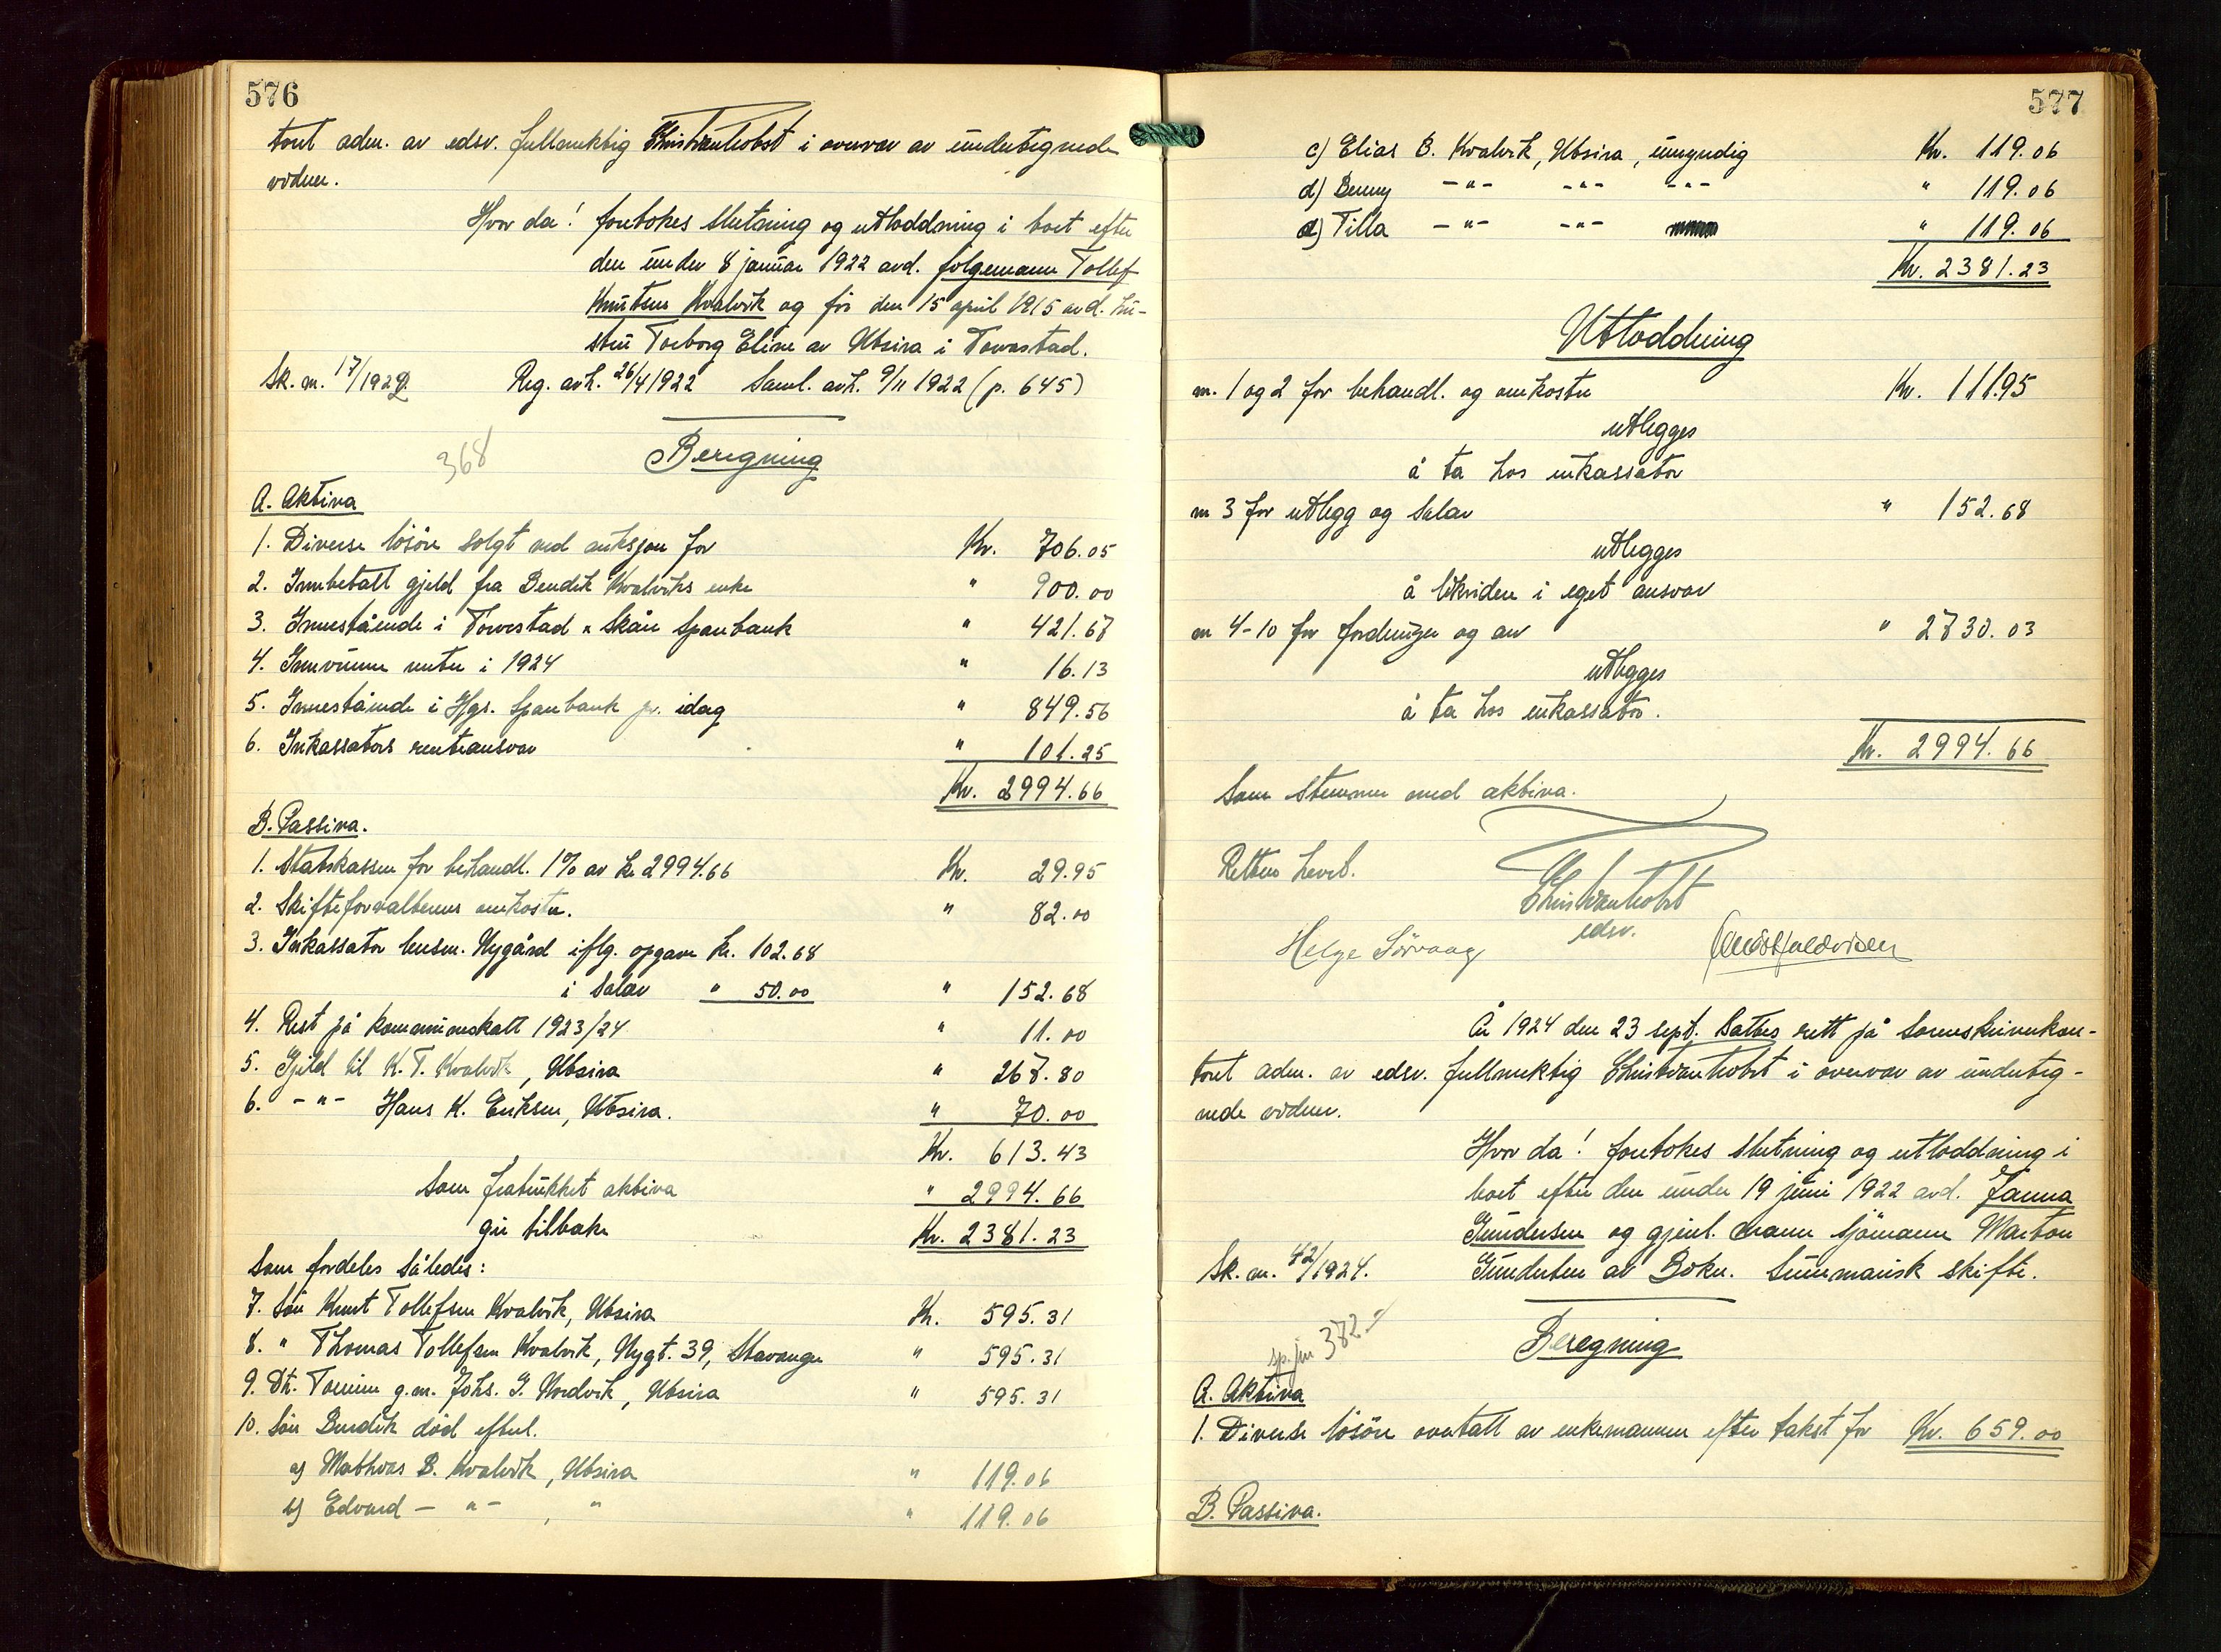 576
toret adm. av edsv. fullmektig Christian Hobst i overvær av undertegnede
vidner.
Hvor da! foretokes slutning og utloddning i boet efter
den under 8 januar 1922 avd. følgemann Tollef
Knutsen Kvalvik og før den 15 april 1915 avd. hu-
stru Torborg Eline av Utsira i Torvastad.
Sk. nr. 17/1922. Reg. avh. 26/4 1922 Saml. avh. 9/11 1922 (p. 645)
368
Beregning
A. Aktiva
1. Diverse lösöre solgt ved auksjon for Kr. 706.05
2. Innbetalt gjeld fra Bendik Kvalviks enke " 900.00
3. Innestående i Torvestad & Skåre Sparebank " 421.67
4. Innvunne renter i 1924 " 16.13
5. Innestående i Hgs. Sparebank pr. idag " 849.56
6. Inkassators renteansvar " 101.25
Kr. 2994.66
B. Passiva.
1. Statskassen for behandl. 1% av kr 2994.66 Kr. 29.95
2. Skifteforvalterens omkostn. " 82.00
3. Inkassator lensm. Nygård iflg. opgave kr. 102.68
i Salær " 50.00 " 152.68
4. Rest på kommuneskatt 1923/24 " 11.00
5. Gjeld til K. T. Kvalvik, Utsira " 267.80
6. -"- Hans K. Eriksen, Utsira. " 70.00
Kr. 613.43
Som fratrukket aktiva " 2994.66
gir tilbake Kr. 2381.23
Som fordeles således:
7. Sön Knut Tollefsen Kvalvik, Utsira Kr. 595.31
8. " Thomas Tollefsen Kvalvik, Nygt. 39, Stavanger " 595.31
9. Dt. Tomine g.m. Johs. G. Nordvik, Utsira " 595.31
10. Sön Bendik död efterl.
a) Mathias B. Kvalvik, Utsira " 119.06
b) Edvard -"- , " " 119.06
577
c) Elias B. Kvalvik, Utsira, umyndig Kr. 119.06
d) Benny -"- -"- -"- " 119.06
e) Tilla -"- -"- " 119.06
Kr. 2381.23
Utloddning
nr. 1 og 2 for behandl. og omkostn Kr. 111.95
utlegges
å ta hos inkassator
nr 3 for utlegg og Salær " 152.68
utlegges
å likvidere i eget ansvar
nr 4-10 for fordringer og arv " 2730.03
utlegges
å ta hos inkassator.
Kr. 2994.66
Som stemmer med aktiva.
Retten hevet.
Christian Hobst
edsv.
Helge Sörvaag
År 1924 den 23 sept. sattes rett på Sorenskriverkon-
toret adm. av edsv. fullmektig Christian Hobst i overvær av underteg-
nede vidner.
Hvor da! foretokes slutning og utloddning i
boet efter den under 19 juni 1922 avd. Janna
Gundersen og gjenl. mann sjömann Marton
Sk. nr. 42/1924. Gundersen av Bokn. Summarisk skifte.
sp.jnr 382
Beregning
A. Aktiva
1. Diverse lösöre overtatt av enkemannen efter takst for Kr. 659.00
B. Passiva.